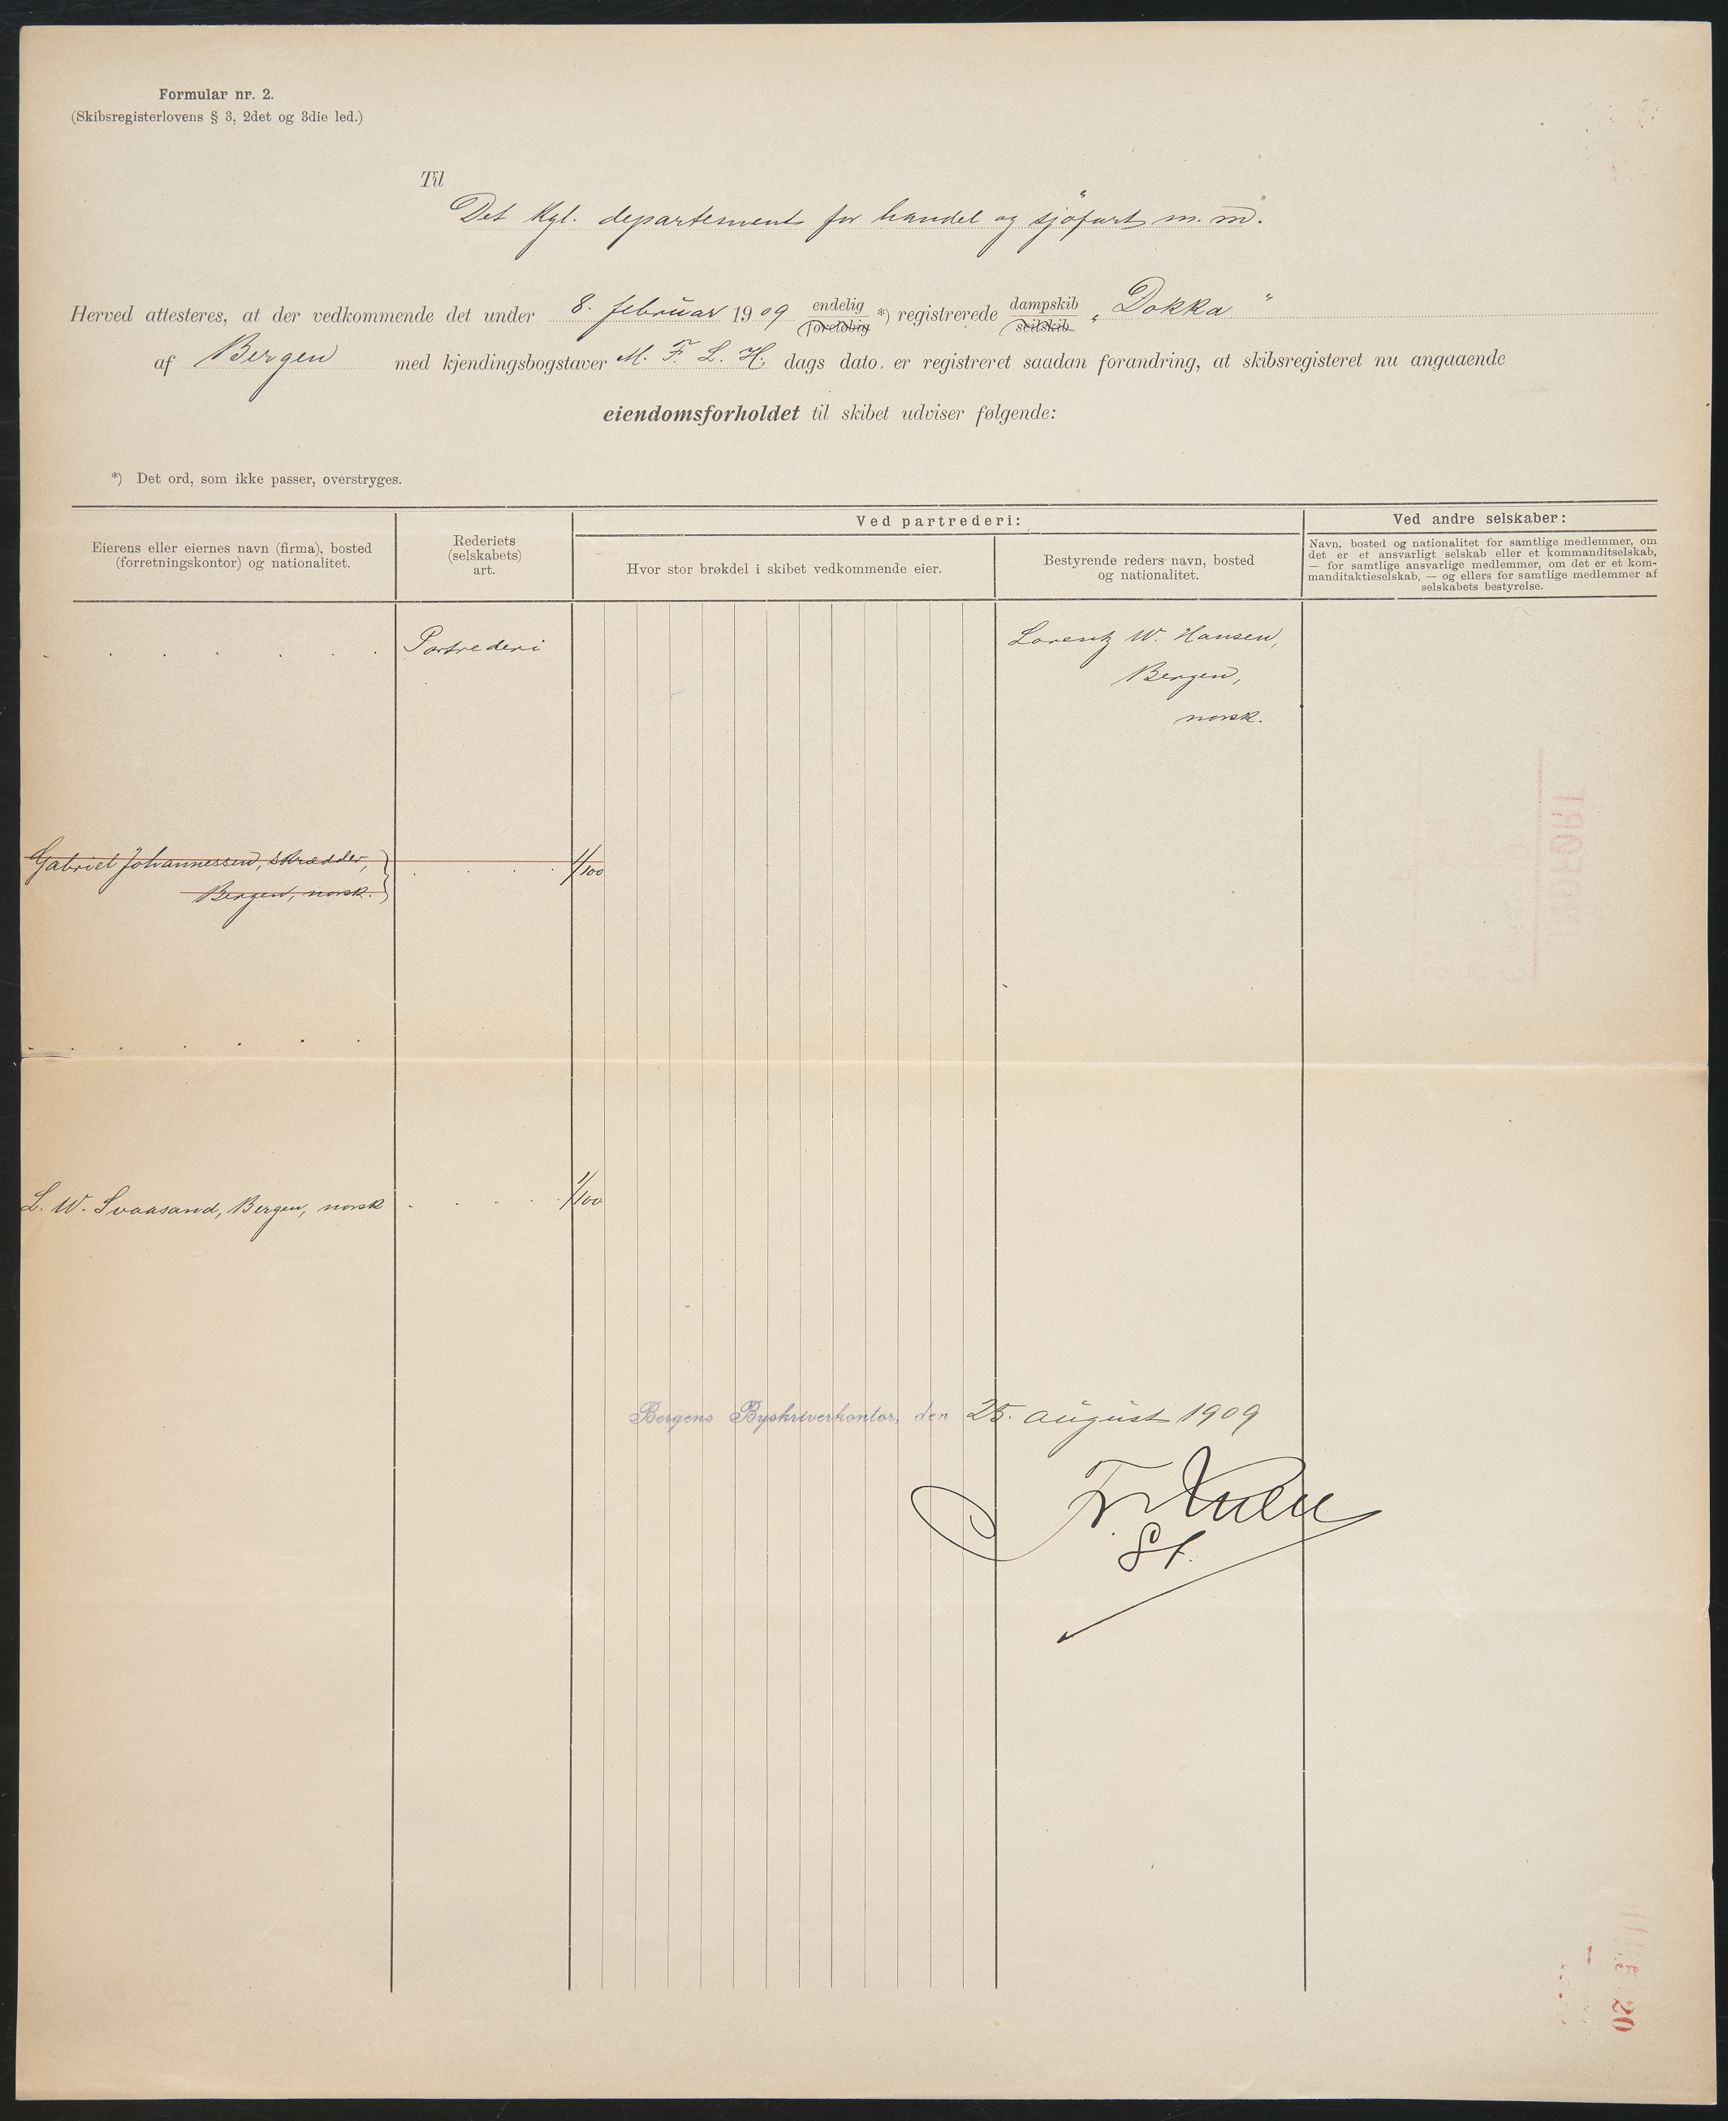 Formular nr. 2.
(Skibsregisterlovens § 3, 2det og 3die led.)
Til
Det kgl. departement for handel og sjöfart m. m.
Herved attesteres, at der vedkommende det under 8. februar 1909 endelig *) registrerede dampskib „Dokka“
foreløbig seilskib
af Bergen med kjendingsbogstaver M. F. L. H. dags dato er registreret saadan forandring, at skibsregisteret nu angaaende
eiendomsforholdet til skibet udviser følgende:
*) Det ord, som ikke passer, overstryges.
Eierens eller eiernes navn (firma), bosted
(forretningskontor) og nationalitet.
Rederiets
(selskabets)
art.
Ved partrederi:
Hvor stor brøkdel i skibet vedkommende eier.
Bestyrende reders navn, bosted
og nationalitet.
Ved andre selskaber:
Navn, bosted og nationalitet for samtlige medlemmer, om
det er et ansvarligt selskab eller et kommanditselskab,
— for samtlige ansvarlige medlemmer, om det er et kom-
manditaktieselskab, — og ellers for samtlige medlemmer af
selskabets bestyrelse.
Partrederi
Lorentz W. Hansen,
Bergen,
norsk.
Gabriel Johannessen, skrædder, 1/100
Bergen, norsk.
L. W. Svaasand, Bergen, norsk 1/100
Bergens Byskriverkontor, den 25. august 1909